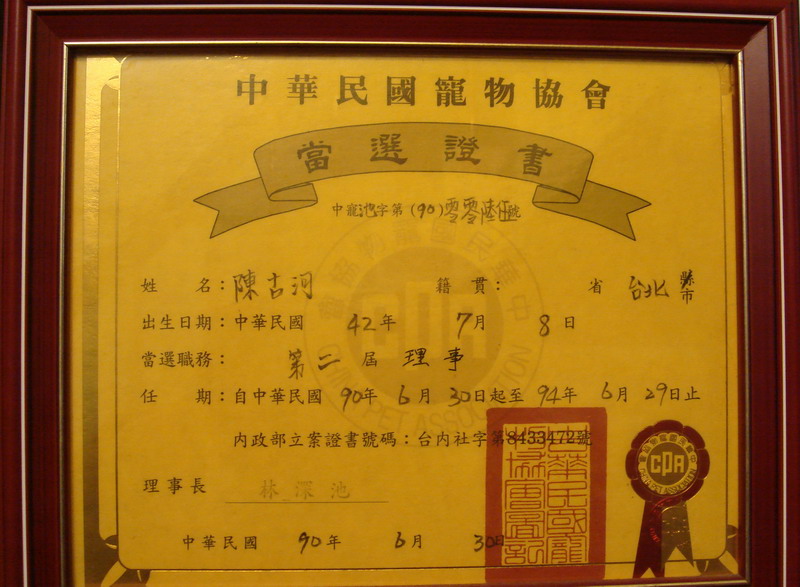 中華民國寵物協會
當選證書
中寵池字第(90)零零陸伍號
姓　名：陳古河　籍　貫：　省　台北　縣市
出生日期：中華民國　42年　7月　8日
當選職務：　第二屆　理事
任　期：自中華民國　90年　6月　30日起至　94年　6月　29日止
內政部立案證書號碼：台內社字第8433472號
理事長　林深池
中華民國　90年　6月　30日
CPA